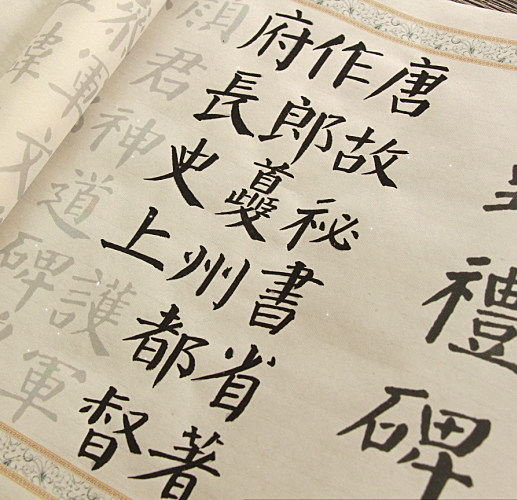 禮碑
唐故祕書省著
作郎夔州都督
府長史上護軍
顏君神道碑
軍文